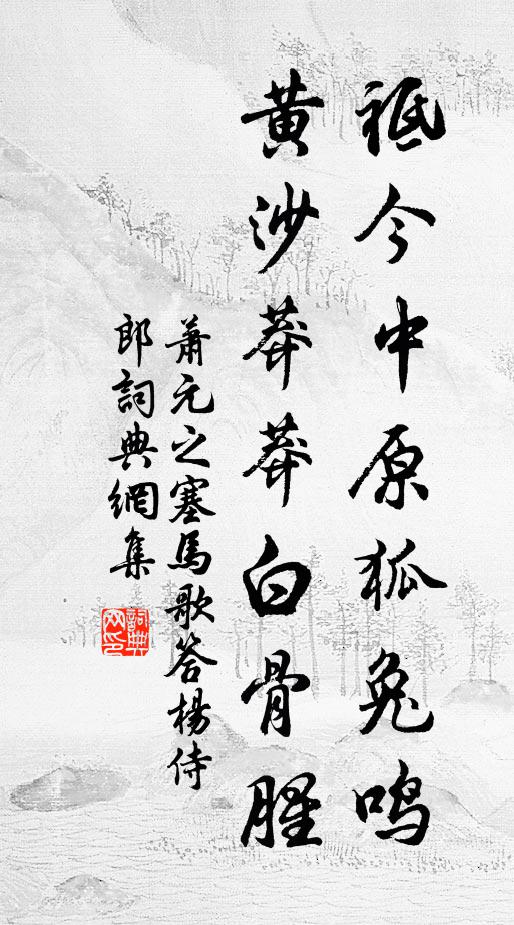 祗今中原狐兔鳴
黄沙莽莽白骨腥
蕭元之塞馬歌答楊侍
郎詞典網集
詞典網印